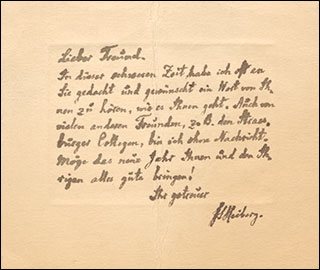 Lieber Freund.
In dieser schweren Zeit habe ich oft an
Sie gedacht und gewünscht ein Wort von Ih-
nen zu hören, wie es Ihnen geht. Auch von
vielen anderen Freunden, z. B. den Strass-
burger Collegen, bin ich ohne Nachricht.
Möge das neue Jahr Ihnen und den Ih-
rigen alles gute bringen!
Ihr getreuer
J L Heiberg.